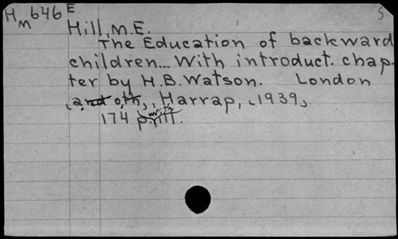 Hm 646 E 5
Hill, M.E.
The Education of backward
children... With introduct. chap-
ter by H.B. Watson. London
, and oth., , Harrap, , 1939,
174 p.